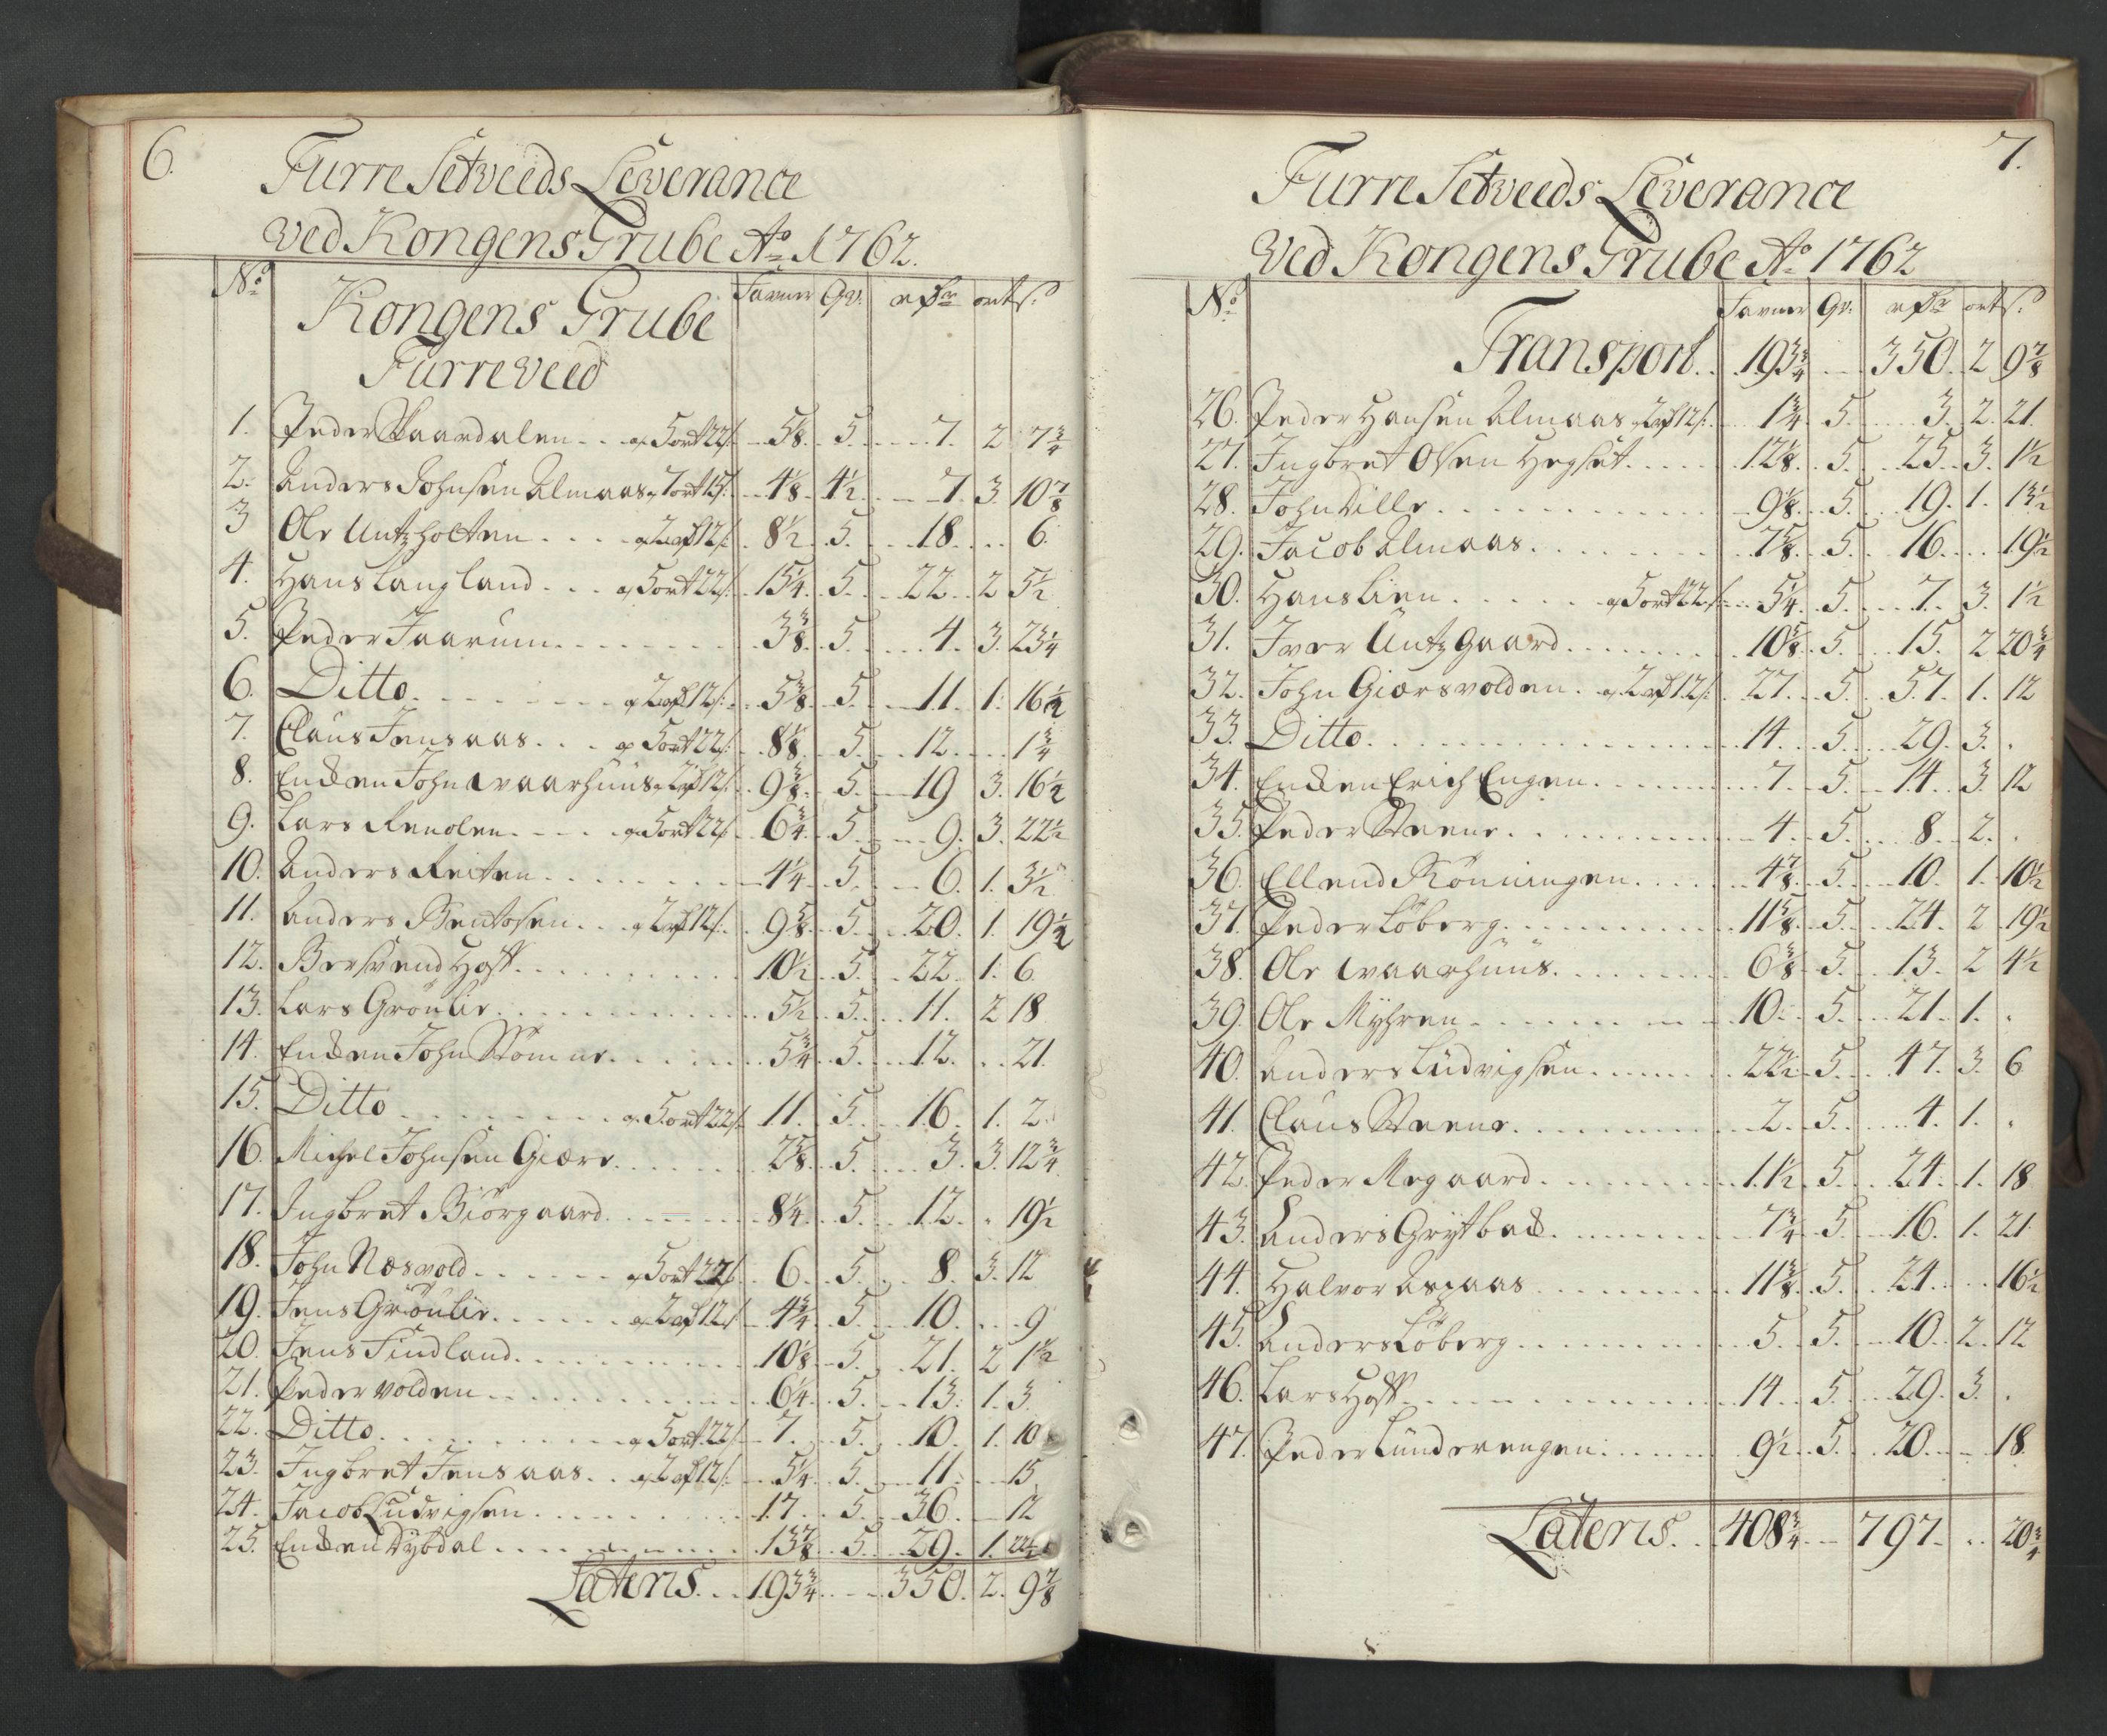 6.
Furre Setveeds Leverance
ved Kongens Grube Ao 1762.
No Favner Qv. rdr ort s.
Kongens Grube
Furreveed
1. Peder Skaardalen . . a 5 ort 22 s. 5 1/8 5 7. 2 7 3/4
2. Anders Johnsen Almaas a 7 ort 15 s. 4 1/8 4 1/2 7. 3. 10 7/8
3 Ole Untzholten . . . a 2 rd 12 s. 8 1/2 5. 18. 6.
4. Hans Langland . . . a 5 ort 22 s. 15 1/4 5 22. 2 5 1/2
5. Peder Jaarum 3 3/8 5 4. 3. 23 1/4
6. Ditto a 2 rd 12 s. 5 3/8 5 11. 1. 16 1/2
7. Claus Jensaas . . . a 5 ort 22 s. 8 1/8 5. 12. 1 3/4
8. Enken John Waarhuus a 2 rd 12 s. 9 3/8 5. 19 3. 16 1/2
9. Lars Renolen a 5 ort 22 s. 6 3/4 5. 9. 3. 22 1/2
10. Anders Reiten 4 1/4 5 6. 1. 3 1/2
11. Anders Bentosen . . a 2 rd 12 s. 9 5/8 5 20. 1. 19 1/2
12. Bersvend Hoff 10 1/2 5. 22. 1. 6
13. Lars Grönlie 5 1/2 5. 11. 2 18
14. Enken John Stömne 5 3/4 5 12. 21.
15. Ditto a 5 ort 22 s. 11. 5. 16. 1. 2.
16. Michel Johnsen Giære 2 5/8 5 3. 3. 12 3/4
17. Ingbret Biörgaard 8 1/4 5. 12. 19 1/2
18. John Næsvold a 5 ort 22 s. 6. 5. 8. 3. 12
19. Jens Grönlie a 2 rd 12 s. 4 3/4 5. 10. 9
20. Jens Findland 10 1/8 5. 21. 2 1 1/2
21. Peder Volden 6 1/4 5. 13. 1. 3.
22. Ditto a 5 ort 22 s. 7. 5. 10. 1. 10
23. Ingbret Jensaas . . a 2 rd 12 s. 5 1/4 5. 11. 15
24. Jacob Ludvigsen 17. 5. 36. 12
25. Enken Dybdal 13 7/8 5. 29. 1. 22 1/2
Lateris . . 193 3/4 350. 2. 9 7/8
7.
Furre Setveeds Leverance
Ved Kongens Grube Ao 1762
No Favner Qv. rdr ort s.
Transport. 193 3/4 350. 2 9 7/8
26. Peder Hansen Almaas a 2 rd 12 s. 1 3/4 5. 3. 2. 21.
27. Ingbret Olsen Hegset 12 1/8 5. 25. 3. 1 1/2
28. John Dille 9 1/8 5. 19. 1. 13 1/2
29. Jacob Almaas 7 5/8 5. 16. 19 1/2
30. Hans Lien a 5 ort 22 s. 5 1/4 5. 7. 3. 1 1/2
31. Iver Untzgaard 10 5/8 5. 15. 2 20 3/4
32. John Giærsvolden . a 2 rd 12 s. 27. 5. 57. 1. 12
33. Ditto 14. 5. 29. 3. .
34. Enken Erich Engen 7. 5. 14. 3. 12
35. Peder Steene 4. 5. 8. 2. .
36. Ellend Röningen 4 7/8 5. 10. 1. 10 1/2
37. Peder Löberg 11 5/8 5. 24. 2 19 1/2
38. Ole Waarhuus 6 3/8 5. 13. 2 4 1/2
39. Ole Myhren 10. 5. 21. 1. .
40. Anders Ludvigsen 22 1/2 5. 47. 3. 6
41. Claus Steene 2. 5. 4. 1. .
42. Peder Megaard 11 1/2 5. 24. 1. 18
43. Anders Grytbak 7 3/4 5. 16. 1. 21.
44. Halvor Aspaas 11 3/8 5. 24. 16 1/2
45. Anders Löberg 5. 5. 10. 2. 12
46. Lars Hoff 14. 5. 29. 3. .
47. Peder Lunderengen 9 1/2 5. 20. 18.
Lateris. . 408 3/4 797. 20 3/4